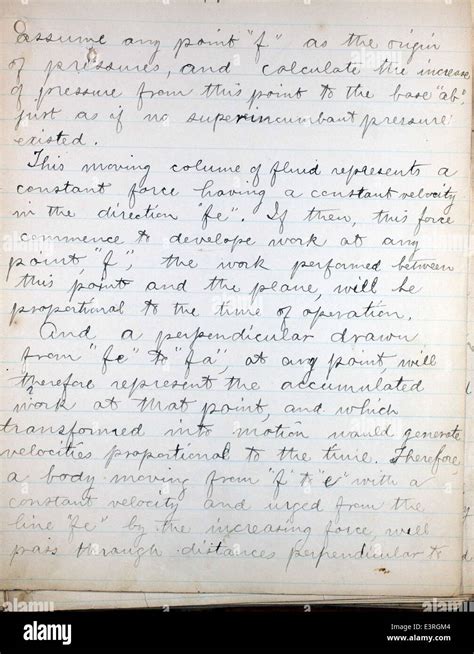 assume any point "f" as the origin
of pressures, and calculate the increase
of pressure from this point to the base "ab"
just as if no superincumbant pressure
existed.
This moving column of fluid represents a
constant force having a constant velocity
in the direction "fe". If then, this force
commence to develope work at any
point "f", the work performed between
this point and the plane, will be
proportional to the time of operation.
And a perpendicular drawn
from "fe" to "fa", at any point, will
therefore represent the accumulated
work at that point, and which
transformed into motion would generate
velocities proportional to the time. Therefore
a body moving from "f" to "e" with a
constant velocity and urged from the
line "fe" by the increasing force, will
pass through distances perpendicular to
alamy stock photo
E3RGM4
www.alamy.com